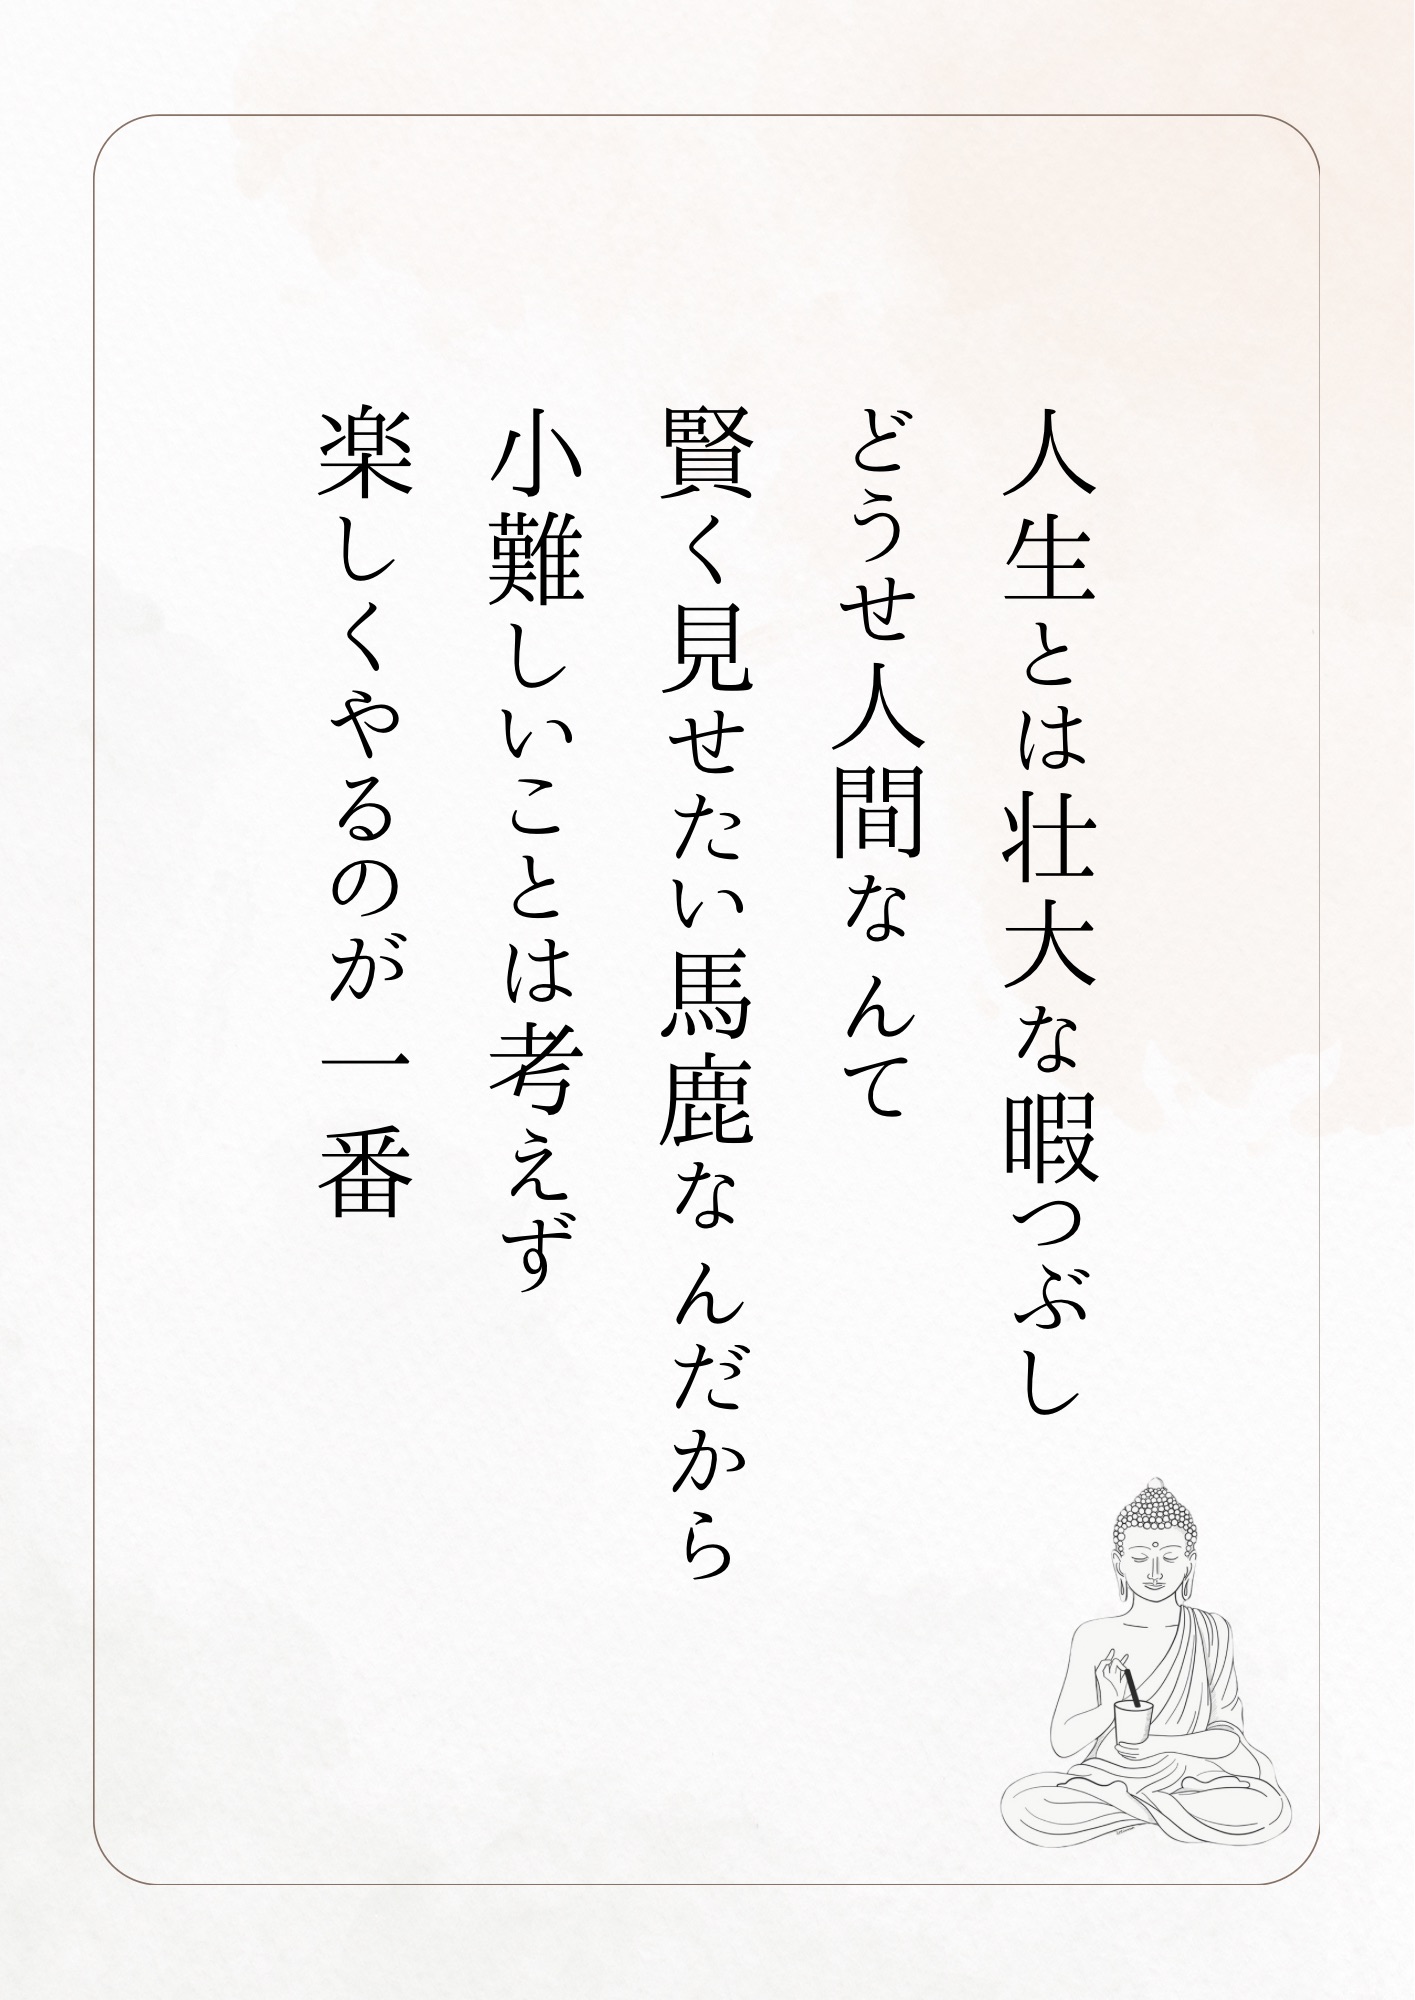 人生とは壮大な暇つぶし
どうせ人間なんて
賢く見せたい馬鹿なんだから
小難しいことは考えず
楽しくやるのが一番